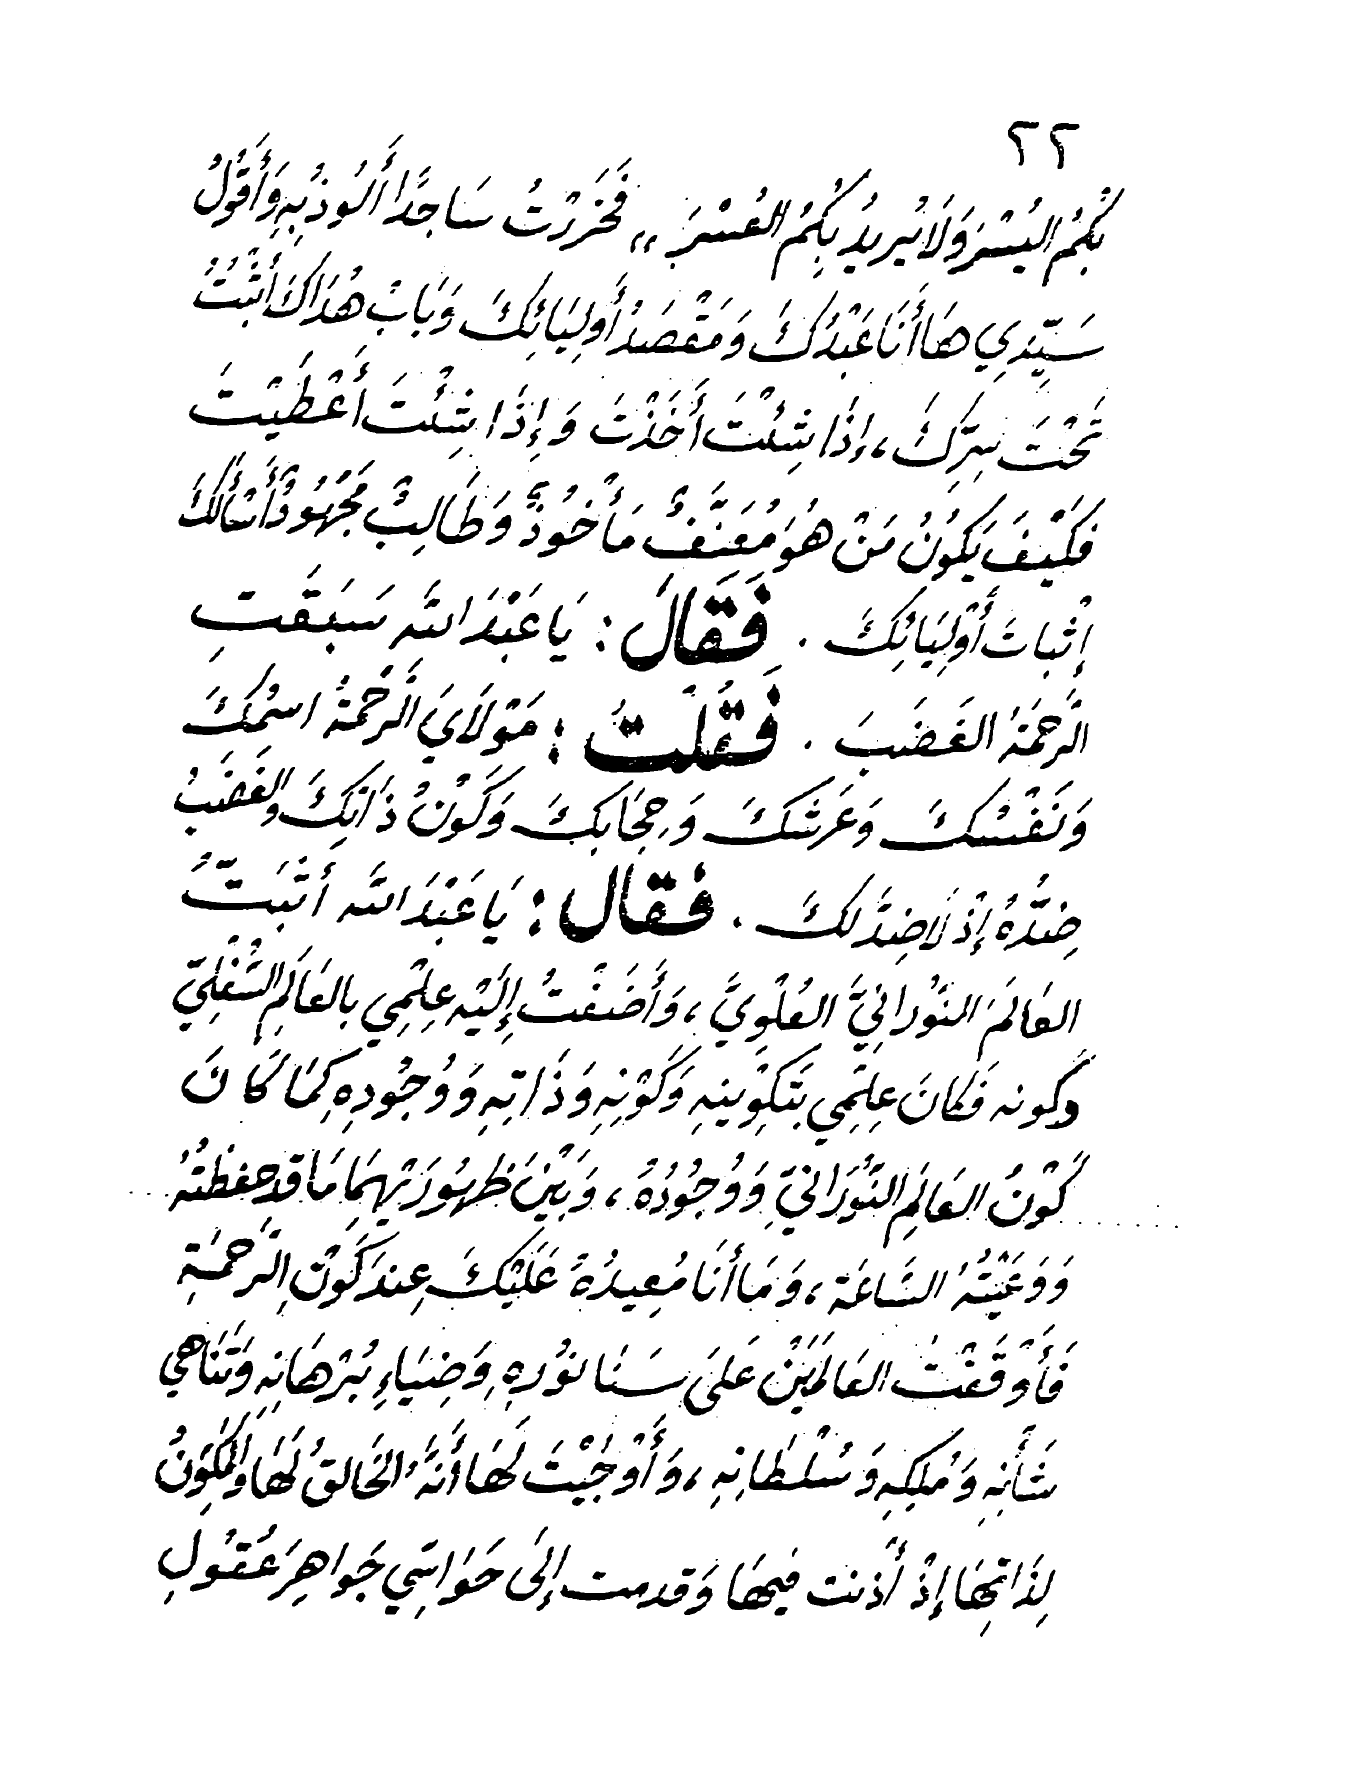 ٢٢
بِكُمُ اليُسْرَ وَلَا يُرِيدُ بِكُمُ العُسْرَ ,, فَخَرَرْتُ سَاجِدًا أَلُوذُ بِهِ وَأَقُولُ
سَيِّدِي هَا أَنَا عَبْدُكَ وَمَقْصَدُ أَولِيَائِكَ وَبَابُ هُدَاكَ أَثْبَتُّ
تَحْتَ سِرِّكَ ، إِذَا شِئْتَ أَخَذْتَ وَإِذَا شِئْتَ أَعْطَيْتَ
فَكَيْفَ يَكُونُ مَنْ هُوَ مُعَنَّفٌ مَأْخُوذٌ وَطَالِبٌ مَجْهُودٌ أَسْأَلُكَ
إِثْبَاتَ أَوْلِيَائِكَ . فَقَالَ : يَا عَبْدَ الله سَبَقَتِ
الرَّحْمَةُ الغَضَبَ . فَقُلْتُ : مَوْلَايَ الرَّحْمَةُ اسْمُكَ
وَنَفْسُكَ وَعَرْشُكَ وَحِجَابُكَ وَكَوْنُ ذَاتِكَ والغَضَبُ
ضِدُّهُ إِذْ لَا ضِدَّ لَكَ . فقال : يَا عَبْدَ الله أَثْبَتُّ
العَالَمَ النُّورَانِيَّ العُلْوِيَّ ، وَأَضَفْتُ إِلَيْهِ عِلْمِي بالعَالَمِ السُّفْلِيِّ
وكَونه فَكَانَ عِلْمِي بَتَكْوِينِهِ وَكَوْنِهِ وَذَاتِهِ وَوُجُودِهِ كَمَا كَانَ
كَوْنُ العَالَمِ النُّورَانِيِّ وَوُجُودُهُ ، وَبَيْنَ ظُهُورَيْهِمَا مَا قد حفظْتَهُ
وَوَعَيْتَهُ السَّاعَة ، وَمَا أَنَا مُعِيدُهُ عَلَيْكَ عِندَ كَوْنِ الرَّحْمَةِ
فَأَوْقَفْتُ العَالَمَيْنِ عَلَى سَنَا نُورِهِ وَضِيَاءِ بُرْهَانِهِ وَتَنَاهِي
شَأْنِهِ وَمُلْكِهِ وَسُلْطَانِهِ ، وَأَوْجَبْتَ لَهَا أَنَّهُ الخَالِقُ لَهَا وَالمُكَوِّنُ
لِذَاتِهَا إِذْ أَذنت فيهَا وَقدمت إِلَى حَوَاسِّي جَوَاهِرَ عُقُولِ